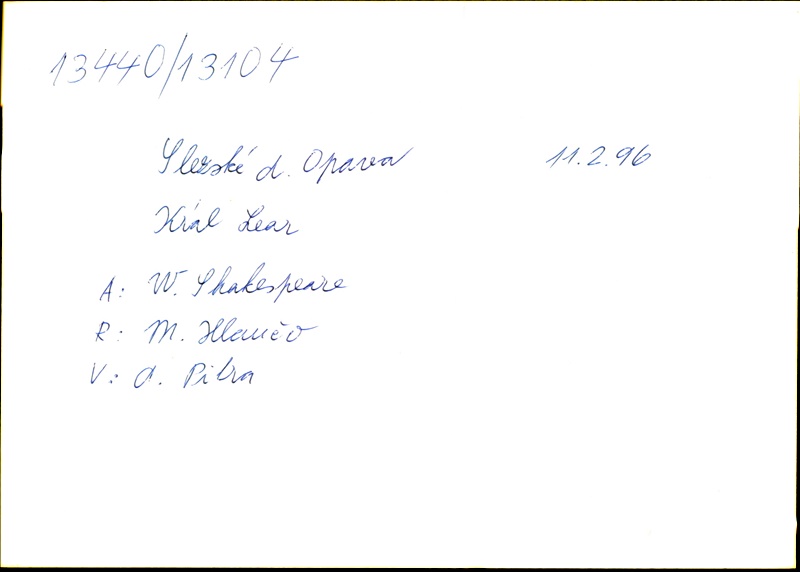 13440/13104
Slezské d. Opava 11.2.96
Král Lear
A: W. Shakespeare
R: M.
V: J. Pitra